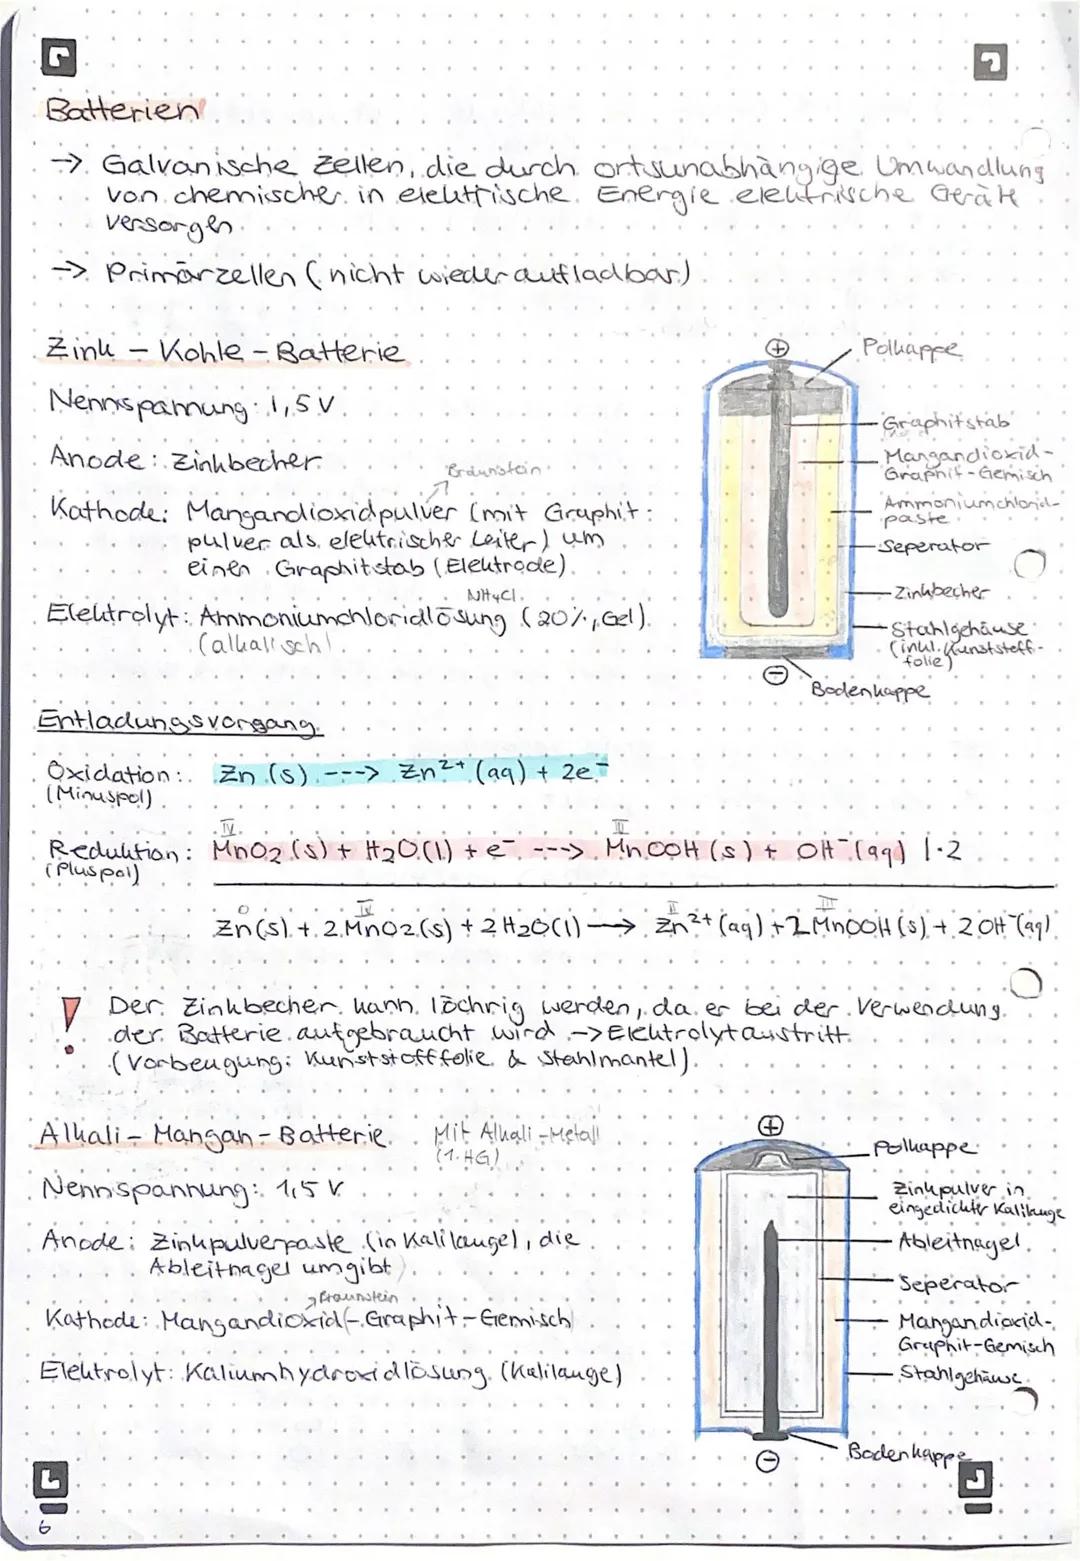 Batterien
→ Galvanische Zellen, die durch ortsunabhängige Umwandlung
von chemischer in elektrische Energie elektrische Geräte
versorgen
→ Primärzellen (nicht wieder aufladbar)
Zink - Kohle - Batterie
Nennspannung: 1,5 V
Anode: Zinkbecher
Braunstein
Kathode: Mangandioxidpulver (mit Graphit-
pulver als elektrischer Leiter) um
einen Graphitstab (Elektrode)
NH4Cl
Elektrolyt: Ammoniumchloridlösung (20%, Gel)
(alkalisch)
⊕
Polkappe
Graphitstab
Mangandioxid-
Graphit-Gemisch
Ammoniumchlorid-
paste
Seperator
Zinkbecher
Stahlgehäuse
(inkl. Kunststoff-
folie)
⊖
Bodenkappe
Entladungsvorgang
Oxidation: Zn (s) ---> Zn²⁺ (aq) + 2e⁻
(Minuspol)
IV III
Reduktion: MnO2 (s) + H2O (l) + e⁻ ---> MnOOH (s) + OH⁻ (aq) | · 2
(Pluspol)
0 IV II III
Zn (s) + 2 MnO2 (s) + 2 H2O (l) → Zn²⁺ (aq) + 2 MnOOH (s) + 2 OH⁻ (aq)
! Der Zinkbecher kann löchrig werden, da er bei der Verwendung
der Batterie aufgebraucht wird -> Elektrolytaustritt
(Vorbeugung: Kunststofffolie & Stahlmantel)
Alkali - Mangan - Batterie Mit Alkali-Metall
(1. HG)
Nennspannung: 1,5 V
Anode: Zinkpulverpaste (in Kalilauge), die
Ableitnagel umgibt
Braunstein
Kathode: Mangandioxid(-Graphit-Gemisch)
Elektrolyt: Kaliumhydroxidlösung (Kalilauge)
⊕
Polkappe
Zinkpulver in
eingedickter Kalilauge
Ableitnagel
Seperator
Mangandioxid-
Graphit-Gemisch
Stahlgehäuse
⊖
Bodenkappe
6